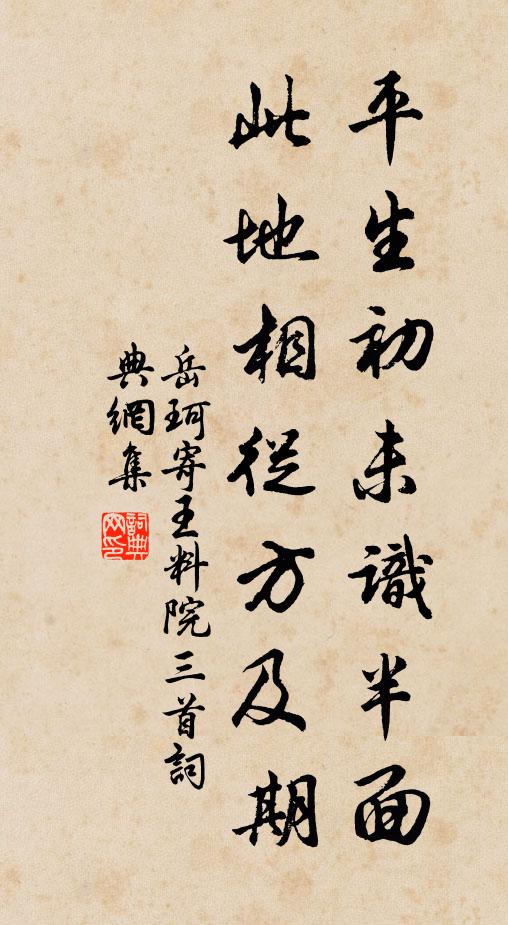 平生初未識半面
此地相從方及期
岳珂寄王料院三首詞
典網集
詞典
网印